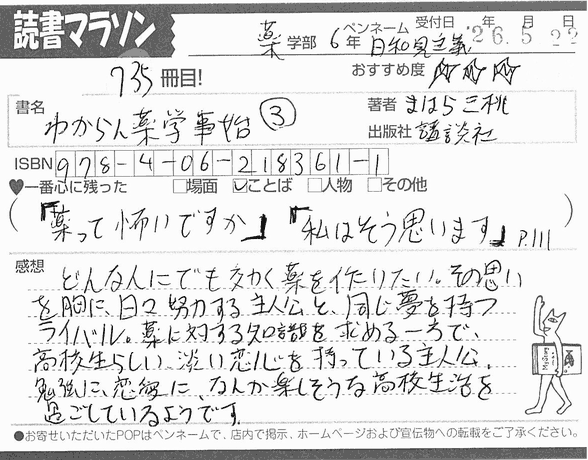 読書マラソン
薬 学部 6年 ペンネーム 日和見主義 受付日 '26年 5月 22日
735冊目! おすすめ度 ☆☆☆
書名 わからん薬学事始③
著者 まはら三桃
出版社 講談社
ISBN 978-4-06-218361-1
♥一番心に残った □場面 ☑ことば □人物 □その他
(『薬って怖いですか』『私はそう思います』P.111)
感想 どんな人にでも効く薬を作りたい。その思い
を胸に、日々努力する主人公と、同じ夢を持つ
ライバル。薬に対する知識を求める一方で、
高校生らしい淡い恋心を持っている主人公。
勉強に、恋愛に、なんか楽しそうな高校生活を
過ごしているようです。
●お寄せいただいたPOPはペンネームで、店内で掲示、ホームページおよび宣伝物への転載をご了承ください。